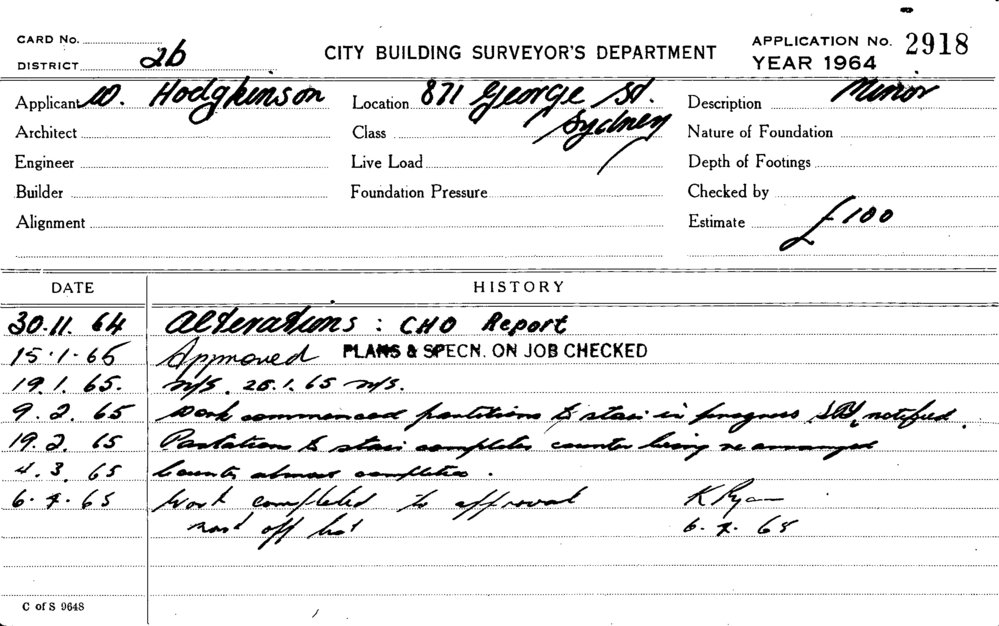 CARD No.
DISTRICT 2b
CITY BUILDING SURVEYOR'S DEPARTMENT
APPLICATION No. 2918
YEAR 1964
Applicant W. Hodgkinson
Location 871 George St. Sydney
Description Minor
Architect
Class
Nature of Foundation
Engineer
Live Load
Depth of Footings
Builder
Foundation Pressure
Checked by
Alignment
Estimate £100
DATE HISTORY
30.11.64 Alterations : CHO Report
15.1.65 Approved PLANS & SPECN. ON JOB CHECKED
19.1.65. N/S. 25.1.65 N/S.
9.2.65 Work commenced partitions to stair in progress notified.
19.2.65 Partitions to stair completed counter being rearranged
4.3.65 Counter almost completed.
6.4.65 Work completed to approval K Ryan
off list 6.4.65
C of S 9648